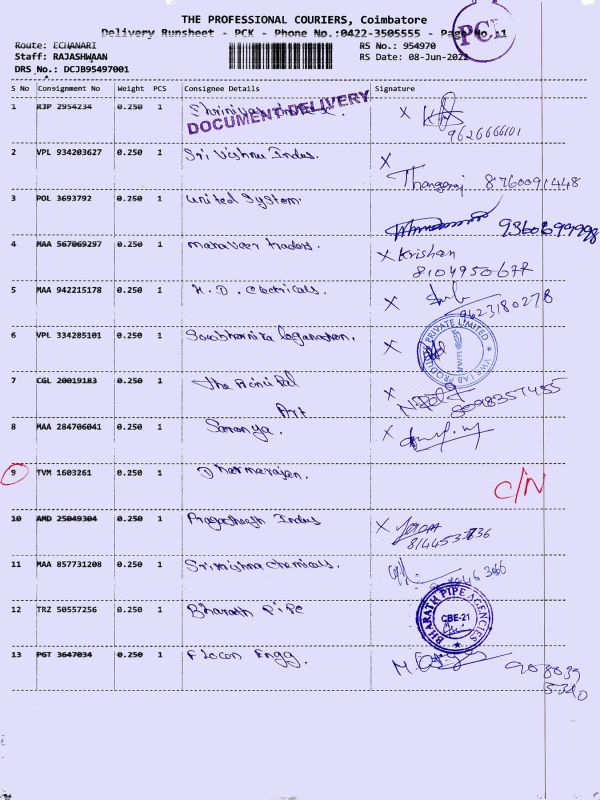 THE PROFESSIONAL COURIERS, Coimbatore
Delivery Runsheet - PCK - Phone No.:0422-3505555 - Page No.:1
PCK
Route: ECHANARI
RS No.: 954970
Staff: RAJASHWAAN
RS Date: 08-Jun-2022
DRS No.: DCJB95497001
S No Consignment No Weight PCS Consignee Details Signature
1 RJP 2954234 0.250 1
DOCUMENT DELIVERY
9626666101
2 VPL 934203627 0.250 1 Sri Vishnu Indus.
Thangaraj 8760091448
3 POL 3693792 0.250 1 United System
4 MAA 567069297 0.250 1 mahaveer traders. X Krishan
8104950677
5 MAA 942215178 0.250 1 H.D. Electricals. X
9623180278
6 VPL 334285101 0.250 1 X
VWR LAB PRODUCTS PRIVATE LIMITED
7 CGL 20019183 0.250 1 The Art X
8098357455
8 MAA 284706041 0.250 1 Saranya. X
9 TVM 1603261 0.250 1 Dharmarajan. C/N
10 AMD 25049304 0.250 1 Indus X
11 MAA 857731208 0.250 1 Srikrishna chemicals.
12 TRZ 50557256 0.250 1 Bharath Pipe
BHARATH PIPE AGENCIES
CBE-21
13 PGT 3647034 0.250 1 Flocon Engg.